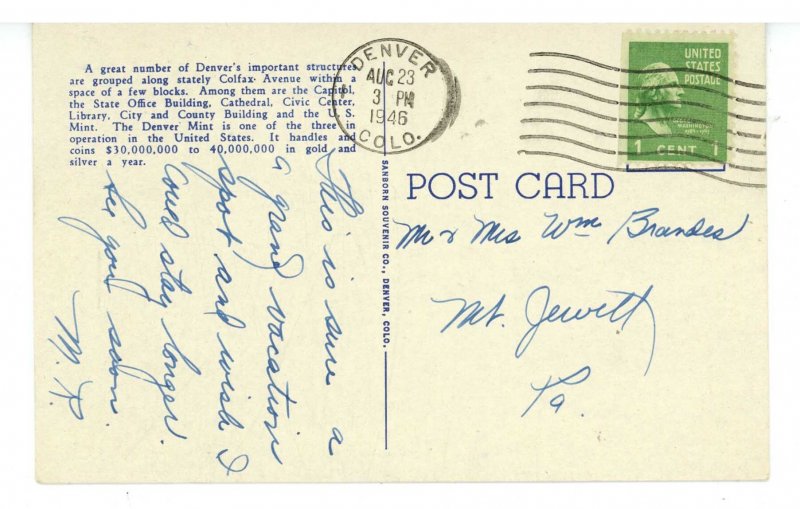 A great number of Denver's important structures
are grouped along stately Colfax Avenue within a
space of a few blocks. Among them are the Capitol,
the State Office Building, Cathedral, Civic Center,
Library, City and County Building and the U. S.
Mint. The Denver Mint is one of the three in
operation in the United States. It handles and
coins $30,000,000 to 40,000,000 in gold and
silver a year.
This is sure a
grand vacation
spot and wish I
could stay longer.
See you soon.
M. K.
SANBORN SOUVENIR CO., DENVER, COLO.
DENVER
AUG 23
3 PM
1946
COLO.
UNITED
STATES
POSTAGE
1 CENT 1
POST CARD
Mr & Mrs Wm Brandes
Mt. Jewett
Pa.